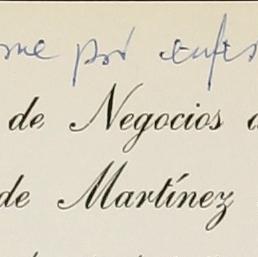 me por
de Negocios
de Martínez